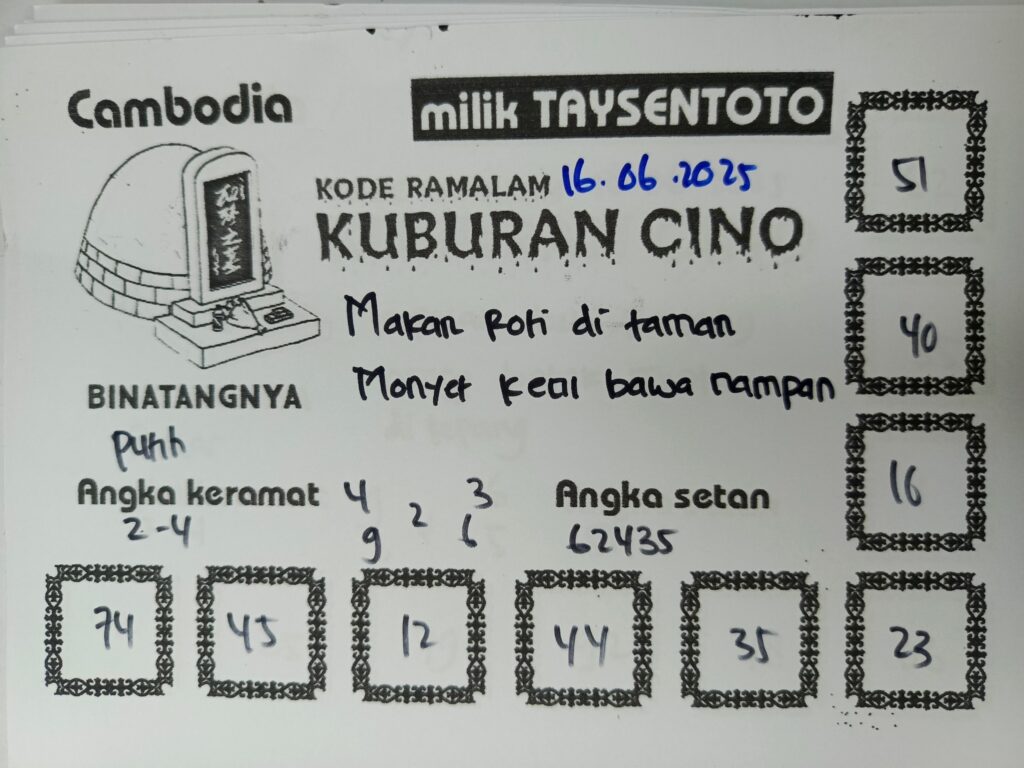 Cambodia
milik TAYSENTOTO
KODE RAMALAM 16.06.2025
KUBURAN CINO
Makan Roti di taman
Monyet kecil bawa nampan
BINATANGNYA
Putih
Angka keramat
2-4
4 3
2
9 6
Angka setan
62435
51
40
16
74 45 12 44 35 23